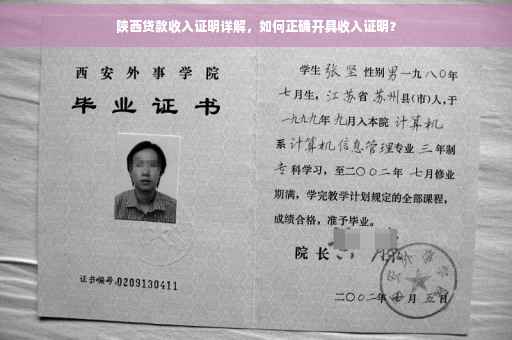 陕西贷款收入证明详解，如何正确开具收入证明?
西安外事学院
毕业证书
证书编号:0209130411
学生 张坚 性别 男 一九八〇年
七月生，江苏省 苏州 县(市)人,于
一九九九年 九月入本院 计算机
系 计算机信息管理 专业 三 年制
专科学习，至二〇〇二年 七月修业
期满，学完教学计划规定的全部课程，
成绩合格，准予毕业。
院 长
二〇〇二年 七 月 五 日